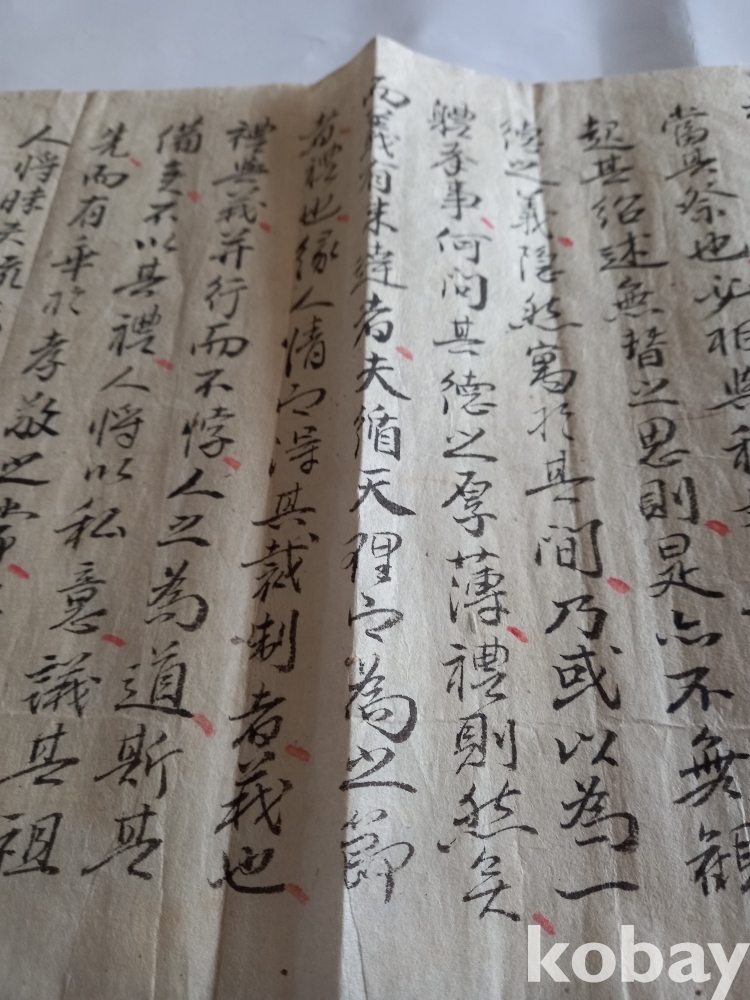 當其祭也必相與
起其紹述無替之思則是亦不無觀
德之義隱然寓於其間乃或以為一
體奉事何問其德之厚薄禮則然矣
而義有未達者夫循天理而為之節
者禮也緣人情而得其裁制者義也
禮與義并行而不悖人之為道斯其
備矣不以其禮人將以私意議其祖
先而有乖於孝敬之節
人將昧失
kobay